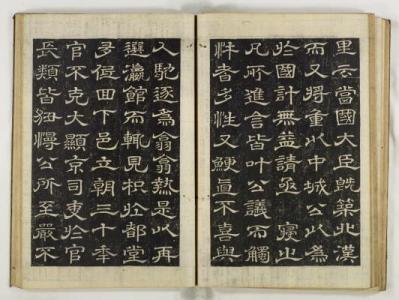 里云當國大臣旣築北漢
而又將重以中城公以爲
於國計無益請亟寢止
凡所進言皆叶公議而觸
忤者多性又鯁直不喜與
人馳逐爲翕翕熱是以再
選瀛館而輒見枳於都堂
多低回下邑立朝三十年
官不克大顯京司吏於官
長類皆狃慢公所至嚴不